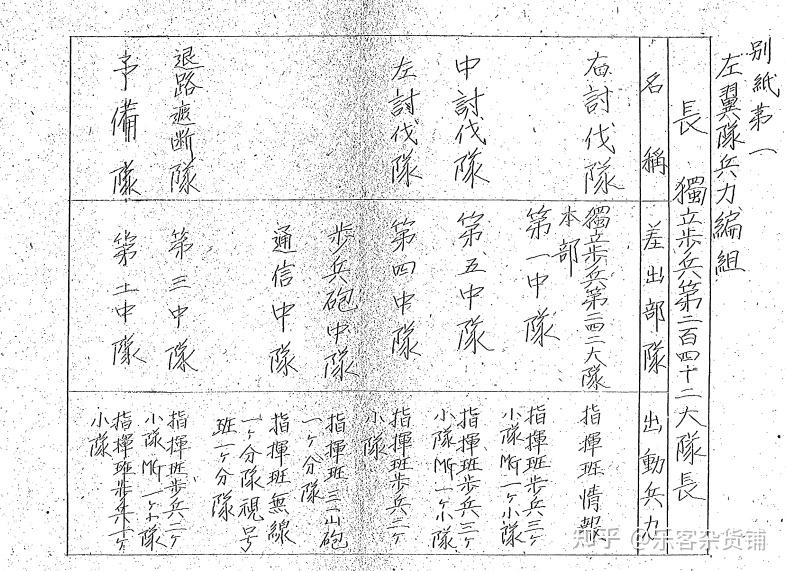 別紙第一
左翼隊兵力編組
長 獨立歩兵第二百四十二大隊長
名稱 差出部隊 出動兵力
右討伐隊
獨立歩兵第二四二大隊
本部
指揮班情報
第一中隊
指揮班歩兵三ヶ
小隊MG一ヶ小隊
中討伐隊
第五中隊
指揮班歩兵三ヶ
小隊MG一ヶ小隊
左討伐隊
第四中隊
指揮班歩兵三ヶ
小隊
歩兵砲中隊
指揮班三一山砲
一ヶ分隊
通信中隊
指揮班無線
一ヶ分隊視号
班一ヶ分隊
退路遮断隊
第三中隊
指揮班歩兵二ヶ
小隊MG一ヶ小隊
予備隊
中隊
指揮班歩兵二ヶ
小隊
知乎 @乐客杂货铺